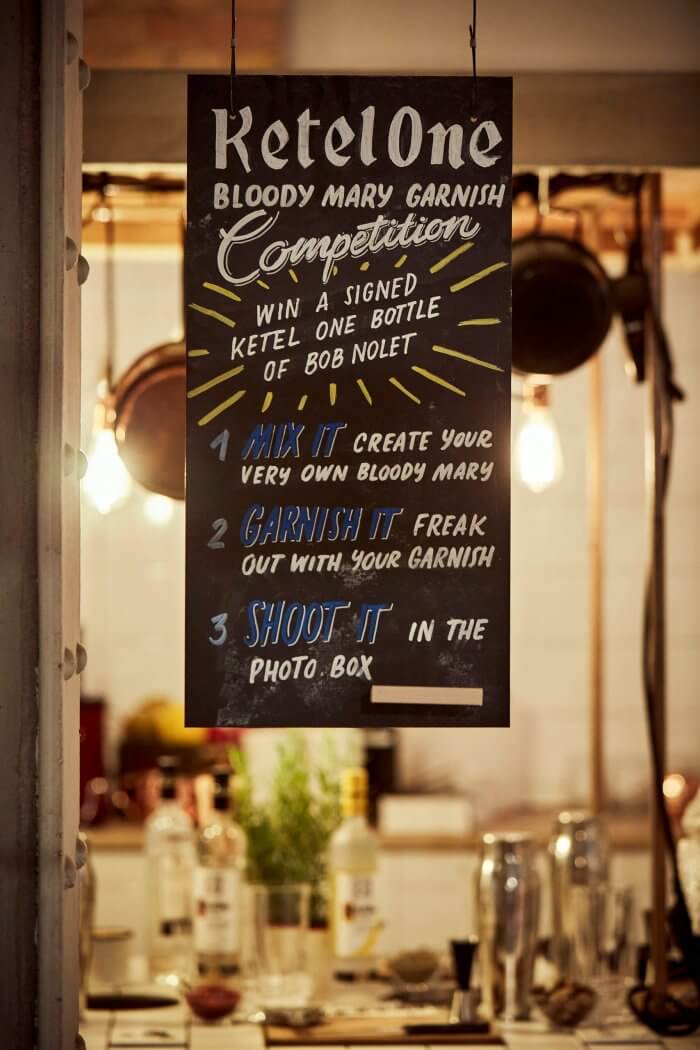 Ketel One
BLOODY MARY GARNISH
Competition
WIN A SIGNED
KETEL ONE BOTTLE
OF BOB NOLET
1 MIX IT CREATE YOUR
VERY OWN BLOODY MARY
2 GARNISH IT FREAK
OUT WITH YOUR GARNISH
3 SHOOT IT IN THE
PHOTO BOX